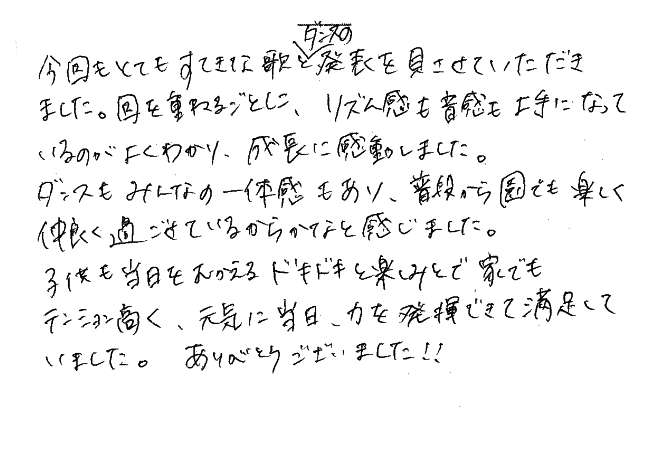 今回もとてもすてきな歌とダンスの発表を見させていただき
ました。回を重ねるごとに、リズム感も音感も上手になって
いるのがよくわかり、成長に感動しました。
ダンスもみんなの一体感もあり、普段から園でも楽しく
仲良く過ごせているからかなと感じました。
子供も当日をむかえるドキドキと楽しみとで家でも
テンション高く、元気に当日、力を発揮できて満足して
いました。 ありがとうございました!!